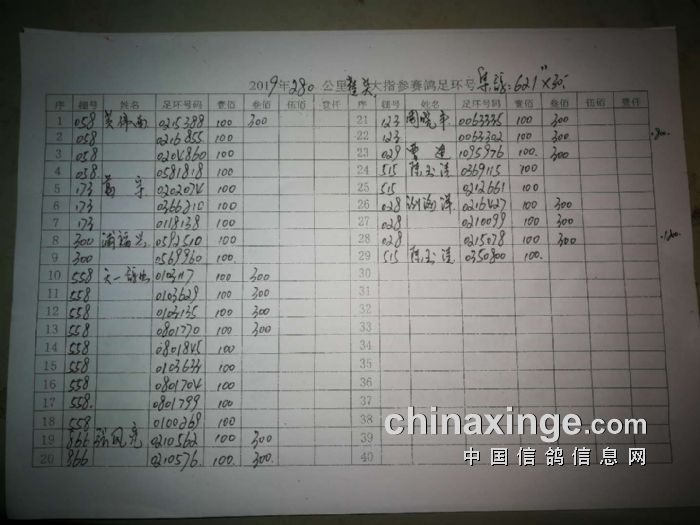 2019年280公里 大指参赛鸽足环号 621" × 30.
序 棚号 姓名 足环号码 壹佰 叁佰 伍佰 壹仟 序 棚号 姓名 足环号码 壹佰 叁佰 伍佰 壹仟
1 058 0215388 100 300 21 123 周晓平 0063335 100 300
2 058 0216855 100 22 123 0063302 100 300
3 058 0204860 100 23 029 曹建 1095976 100 300
4 058 0581818 100 24 515 陈玉清 0369115 100
5 173 葛宇 0202074 100 25 515 0212661 100
6 173 0366210 100 26 028 0216427 100 300
7 173 0118138 100 27 028 0210099 100 300
8 300 浦福兴 0592510 100 28 028 0215078 100 300
9 300 0569960 100 29 515 陈玉清 0350800 100
10 558 天一鸽 0103117 100 300 30
11 558 0103629 100 300 31
12 558 0103135 100 300 32
13 558 0801770 100 300 33
14 558 0801845 100 34
15 558 0103633 100 35
16 558 0801704 100 36
17 558 0801799 100 37
18 558 0100269 100 38
19 866 张凤亮 0210562 100 300 39
20 866 0210576 100 300 40
chinaxinge.com
中国信鸽信息网